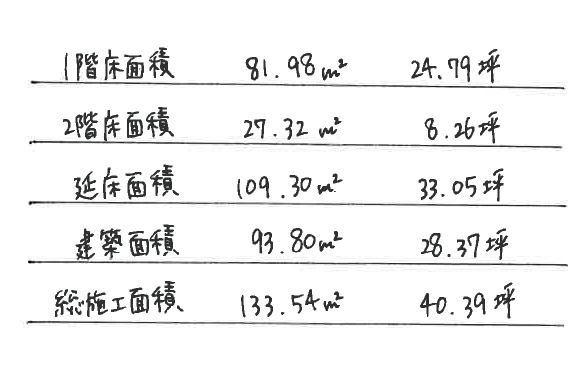 1階床面積 81.98m² 24.79坪
2階床面積 27.32m² 8.26坪
延床面積 109.30m² 33.05坪
建築面積 93.80m² 28.37坪
総施工面積 133.54m² 40.39坪